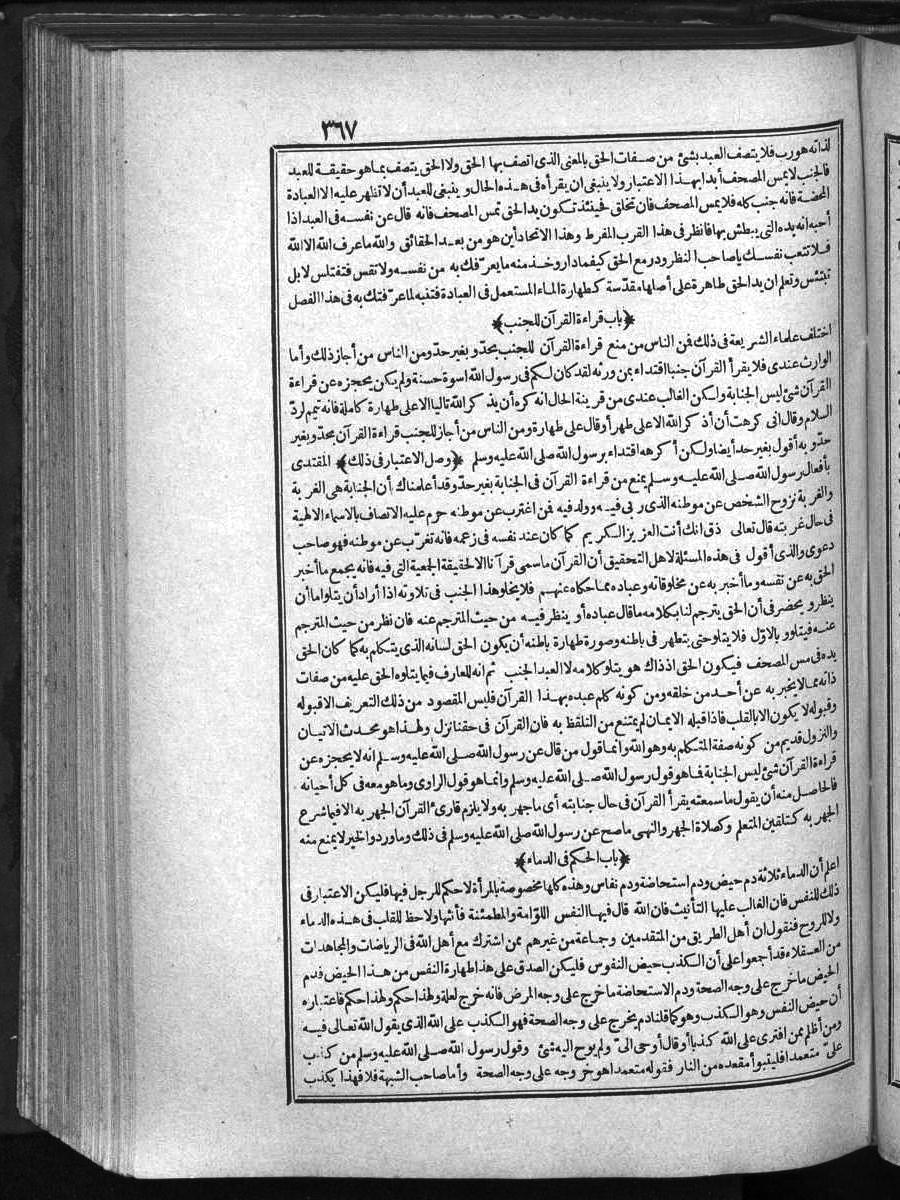 ٣٦٧
لذاته هو رب فلا يتصف العبد بشئ من صفات الحق بالمعنى الذى اتصف بها الحق ولا الحق يتصف بما هو حقيقة للعبد
فالجنب لا يمس المصحف أبدا بهذا الاعتبار ولا ينبغى ان يقرأه فى هذه الحال و ينبغى للعبد أن لا تظهر عليه الا العبادة
المحضة فانه جنب كله فلا يمس المصحف فان تخلق فحينئذ تكون يد الحق تمس المصحف فانه قال عن نفسه فى العبد اذا
أحبه انه يده التى يبطش بها فانظر فى هذا القرب المفرط وهذا الاتحاد أين هو من بعد الحقائق والله ما عرف الله الا الله
فلا تتعب نفسك يا صاحب النظر ودر مع الحق كيفما دار وخذ منه ما يعرّفك به من نفسه ولا تقس فتفتلس لا بل
تبتئس وتعلم ان يد الحق طاهرة على أصلها مقدّسة كطهارة الماء المستعمل فى العبادة فتنبه لما عرّفتك به فى هذا الفصل
﴿باب قراءة القرآن للجنب﴾
اختلف علماء الشريعة فى ذلك فمن الناس من منع قراءة القرآن للجنب بحدّ و بغير حدّ ومن الناس من أجاز ذلك وأما
الوارث عندى فلا يقرأ القرآن جنبا اقتداء بمن ورثه لقد كان لكم فى رسول الله اسوة حسنة ولم يكن يحجزه عن قراءة
القرآن شئ ليس الجنابة ولكن الغالب عندى من قرينة الحال انه كره أن يذكر الله تاليا الا على طهارة كاملة فانه تيمم لردّ
السلام وقال انى كرهت أن أذكر الله الا على طهر أو قال على طهارة ومن الناس من أجاز للجنب قراءة القرآن بحدّ و بغير
حدّ و به أقول بغير حد أيضا ولكن أكرهه اقتداء برسول الله صلى الله عليه وسلم ﴿وصل الاعتبار فى ذلك﴾ المقتدى
بأفعال رسول الله صلى الله عليه وسلم يمنع من قراءة القرآن فى الجنابة بغير حدّ وقد أعلمناك أن الجنابة هى الغربة
والغربة نزوح الشخص عن موطنه الذى ربى فيه وولد فيه فمن اغترب عن موطنه حرم عليه الاتصاف بالاسماء الالهية
فى حال غربته قال تعالى ذق انك أنت العزيز الكريم كما كان عند نفسه فى زعمه فانه تغرّب عن موطنه فهو صاحب
دعوى والذى أقول فى هذه المسئلة لاهل التحقيق أن القرآن ما سمى قرآنا الا لحقيقة الجمعية التى فيه فانه يجمع ما أخبر
الحق به عن نفسه وما أخبر به عن مخلوقاته وعباده مما حكاه عنهم فلا يخلو هذا الجنب فى تلاوته اذا أراد أن يتلو اما أن
ينظر و يحضر فى أن الحق يترجم لنا بكلامه ما قال عباده أو ينظر فيه من حيث المترجم عنه فان نظر من حيث المترجم
عنه فيتلو و بالاوّل فلا يتلو حتى يتطهر فى باطنه وصورة طهارة باطنه أن يكون الحق لسانه الذى يتكلم به كما كان الحق
يده فى مس المصحف فيكون الحق اذ ذاك هو يتلو كلامه لا العبد الجنب ثم انه للعارف فيما يتلوه الحق عليه من صفات
ذاته مما لا يخبر به عن أحد من خلقه ومن كونه كلم عبده بهذا القرآن فليس المقصود من ذلك التعريف الا قبوله
وقبوله لا يكون الا بالقلب فاذا قبله الايمان لم يمتنع من التلفظ به فان القرآن فى حقنا نزل ولهذا هو محدث الاتيان
والنزول قديم من كونه صفة المتكلم به وهو الله وانما قول من قال عن رسول الله صلى الله عليه وسلم انه لا يحجزه عن
قراءة القرآن شئ ليس الجنابة فما هو قول رسول الله صلى الله عليه وسلم وانما هو قول الراوى وما هو معه فى كل أحيانه
فالحاصل منه أن يقول ما سمعته يقرأ القرآن فى حال جنابته أى ما جهر به ولا يلزم قارئ القرآن الجهر به الا فيما شرع
الجهر به كتلقين المتعلم وكصلاة الجهر والنهى ما صح عن رسول الله صلى الله عليه وسلم فى ذلك وما ورد والخبر لا يمنع منه
﴿باب الحكم فى الدماء﴾
اعلم أن الدماء ثلاثة دم حيض ودم استحاضة ودم نفاس وهذه كلها مخصوصة بالمرأة لا حكم للرجل فيها فليكن الاعتبار فى
ذلك للنفس فان الغالب عليها التأنيث فان الله قال فيها النفس اللوّامة والمطمئنة فأنثها ولا حظ للقلب فى هذه الدماء
ولا للروح فنقول ان أهل الطريق من المتقدمين وجماعة من غيرهم ممن اشترك مع أهل الله فى الرياضات والمجاهدات
من العقلاء قد أجمعوا على أن الكذب حيض النفوس فليكن الصدق على هذا طهارة النفس من هذا الحيض فدم
الحيض ما خرج على وجه الصحة ودم الاستحاضة ما خرج على وجه المرض فانه خرج لعلة ولهذا حكم ولهذا حكم فاعتباره
أن حيض النفس وهو الكذب وهو كما قلنا دم يخرج على وجه الصحة فهو الكذب على الله الذى يقول الله تعالى فيه
ومن أظلم ممن افترى على الله كذبا أو قال أوحى الىّ ولم يوح اليه شئ وقول رسول الله صلى الله عليه وسلم من كذب
علىّ متعمدا فليتبوأ مقعده من النار فقوله متعمدا هو خروجه على وجه الصحة وأما صاحب الشبهة فلا فهذا يكذب